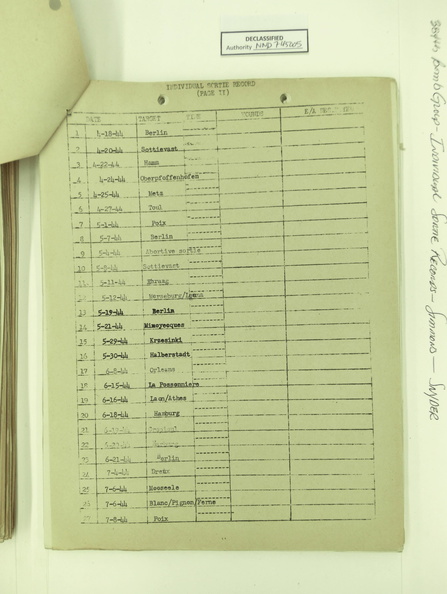 DECLASSIFIED
Authority NND 745005
384th Bomb Group Individual Sortie Records - Simmons - Snyder
INDIVIDUAL SORTIE RECORD
(PAGE II)
DATE TARGET WOUNDS
1 4-18-44 Berlin
2 4-20-44 Sottievast
3 4-22-44 Hamm
4 4-24-44 Oberpfoffenhofen
5 4-25-44 Metz
6 4-27-44 Toul
7 5-1-44 Poix
8 5-7-44 Berlin
9 5-4-44 Abortive sortie
10 5-8-44 Sottievast
11 5-11-44
12 5-12-44 Merseburg/Leuna
13 5-19-44 Berlin
14 5-21-44 Mimoyecques
15 5-29-44 Krzesinki
16 5-30-44 Halberstadt
17 6-8-44 Orleans
18 6-15-44 La Possonniere
19 6-16-44 Laon/Athes
20 6-18-44 Hamburg
21
22
23 6-21-44 Berlin
24 7-4-44 Dreux
25 7-6-44
26 7-6-44 Blanc/Pignon/Ferne
27 7-8-44 Poix